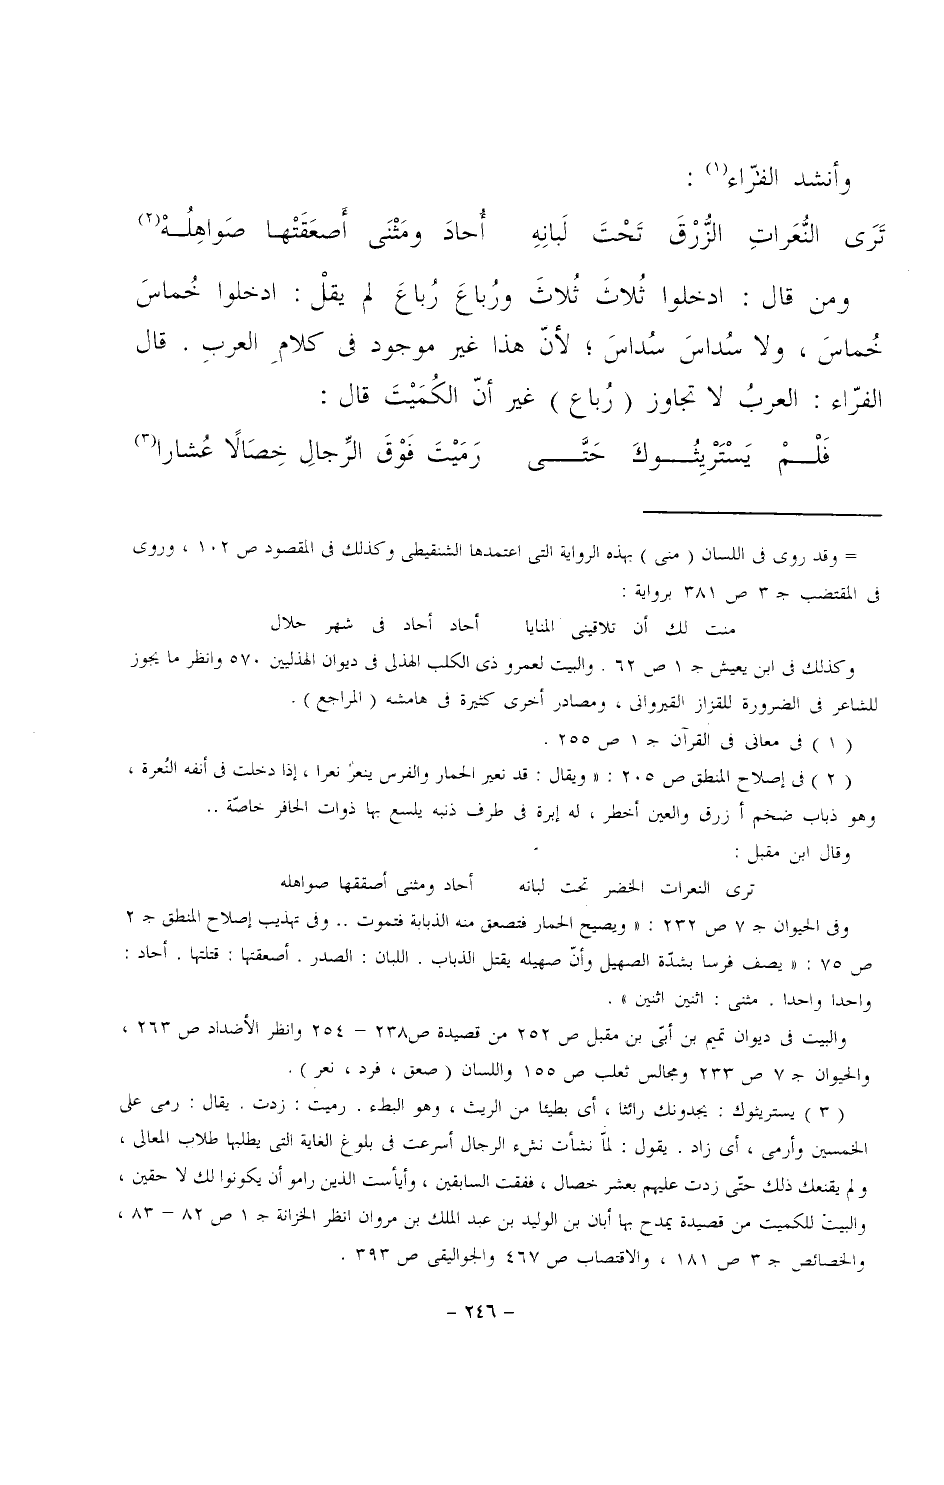 وأنشد الفرّاء(١) :
تَرَى النُّعَراتِ الزُّرْقَ تَحْتَ لَبانِهِ أُحادَ ومَثْنَى أَصعَقَتْها صَواهِلُهْ(٢)
ومن قال : ادخلوا ثُلاثَ ثُلاثَ ورُباعَ رُباعَ لم يقلْ : ادخلوا خُماسَ
خُماسَ ، ولا سُداسَ سُداسَ ؛ لأنّ هذا غير موجود فى كلامِ العربِ . قال
الفرّاء : العربُ لا تجاوز ( رُباع ) غير أنّ الكُمَيْتَ قال :
فَلْم يَسْتَرِيثُوكَ حَتَّى رَمَيْتَ فَوْقَ الرِّجالِ خِصَالًا عُشارا(٣)
= وقد روى فى اللسان ( منى ) بهذه الرواية التى اعتمدها الشنقيطى وكذلك فى المقصود ص ١٠٢ ، وروى
فى المقتضب جـ ٣ ص ٣٨١ برواية :
منت لك أن تلاقينى المنايا أحاد أحاد فى شهر حلال
وكذلك فى ابن يعيش جـ ١ ص ٦٢ . والبيت لعمرو ذى الكلب الهذلى فى ديوان الهذليين ٥٧٠ وانظر ما يجوز
للشاعر فى الضرورة للقزاز القيروانى ، ومصادر أخرى كثيرة فى هامشه ( المراجع ) .
( ١ ) فى معانى فى القرآن جـ ١ ص ٢٥٥ .
( ٢ ) فى إصلاح المنطق ص ٢٠٥ : « ويقال : قد نعير الحمار والفرس ينعرُ نعرا ، إذا دخلت فى أنفه النُعرة ،
وهو ذباب ضخم أ زرق والعين أخطر ، له إبرة فى طرف ذنبه يلسع بها ذوات الحافر خاصّة ..
وقال ابن مقبل :
ترى النعرات الخضر تحت لبانه أحاد ومثنى أصققها صواهله
وفى الحيوان جـ ٧ ص ٢٣٢ : « ويصيح الحمار فتصعق منه الذبابة فتموت .. وفى تهذيب إصلاح المنطق جـ ٢
ص ٧٥ : « يصف فرسا بشدّة الصهيل وأنّ صهيله يقتل الذباب . اللبان : الصدر . أصعقتها : قتلتها . أحاد :
واحدا واحدا . مثنى : اثنين اثنين » .
والبيت فى ديوان تميم بن أبىّ بن مقبل ص ٢٥٢ من قصيدة ص٢٣٨ – ٢٥٤ وانظر الأضداد ص ٢٦٣ ،
والحيوان جـ ٧ ص ٢٣٣ ومجالس ثعلب ص ١٥٥ واللسان ( صعق ، فرد ، نعر ) .
( ٣ ) يستريثوك : يجدونك رائثا ، أى بطيئا من الريث ، وهو البطء . رميت : زدت . يقال : رمى على
الخمسين وأرمى ، أى زاد . يقول : لمّا نشأت نشء الرجال أسرعت فى بلوغ الغاية التى يطلبها طلاب المعالى ،
ولم يقنعك ذلك حتّى زدت عليهم بعشر خصال ، ففقت السابقين ، وأيأست الذين رامو أن يكونوا لك لا حقين ،
والبيت للكميت من قصيدة يمدح بها أبان بن الوليد بن عبد الملك بن مروان انظر الخزانة جـ ١ ص ٨٢ – ٨٣ ،
والخصائص جـ ٣ ص ١٨١ ، والاقتضاب ص ٤٦٧ والجواليقى ص ٣٩٣ .
– ٢٤٦ –